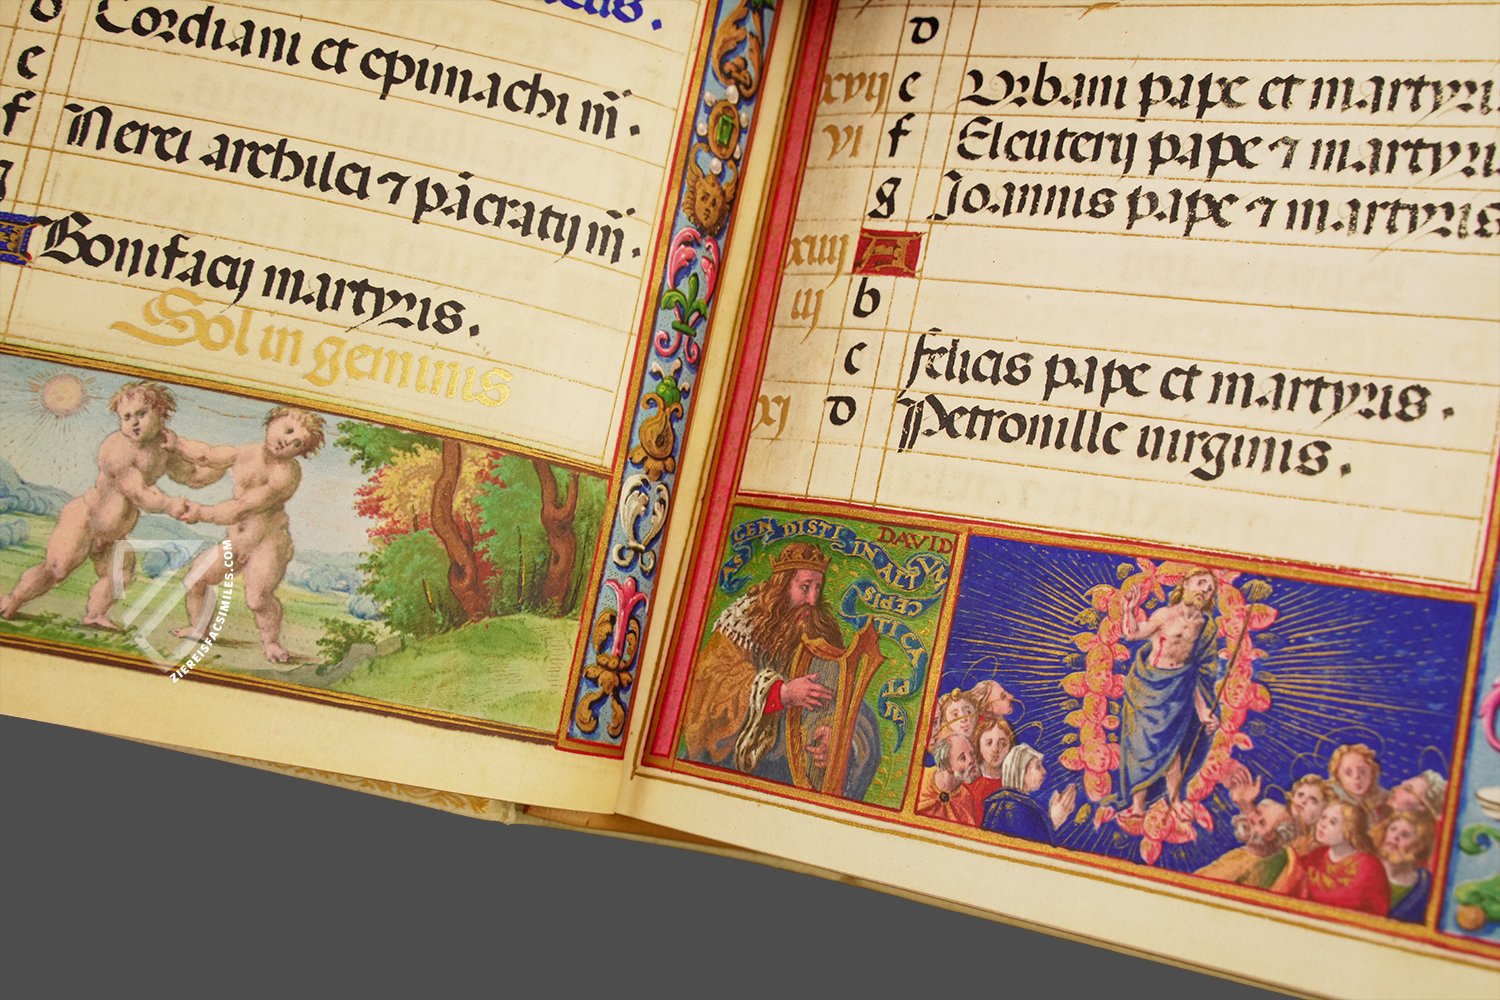 d Gordiani et epimachi m̄.
e
f Nerei archilei ⁊ pācratij m̄.
g
A Bonifacij martyris.
Sol in geminis
d
xvij e Urbani pape et martyri
vi f Eleuterij pape ⁊ martyri
g Joannis pape ⁊ martyris
xiiij A
iij b
c felicis pape et martyris.
xi d Petronille virginis.
ASCENDISTI IN ALT VM CEPISTI CA PT
DAVID
ZIEREISFACSIMILES.COM